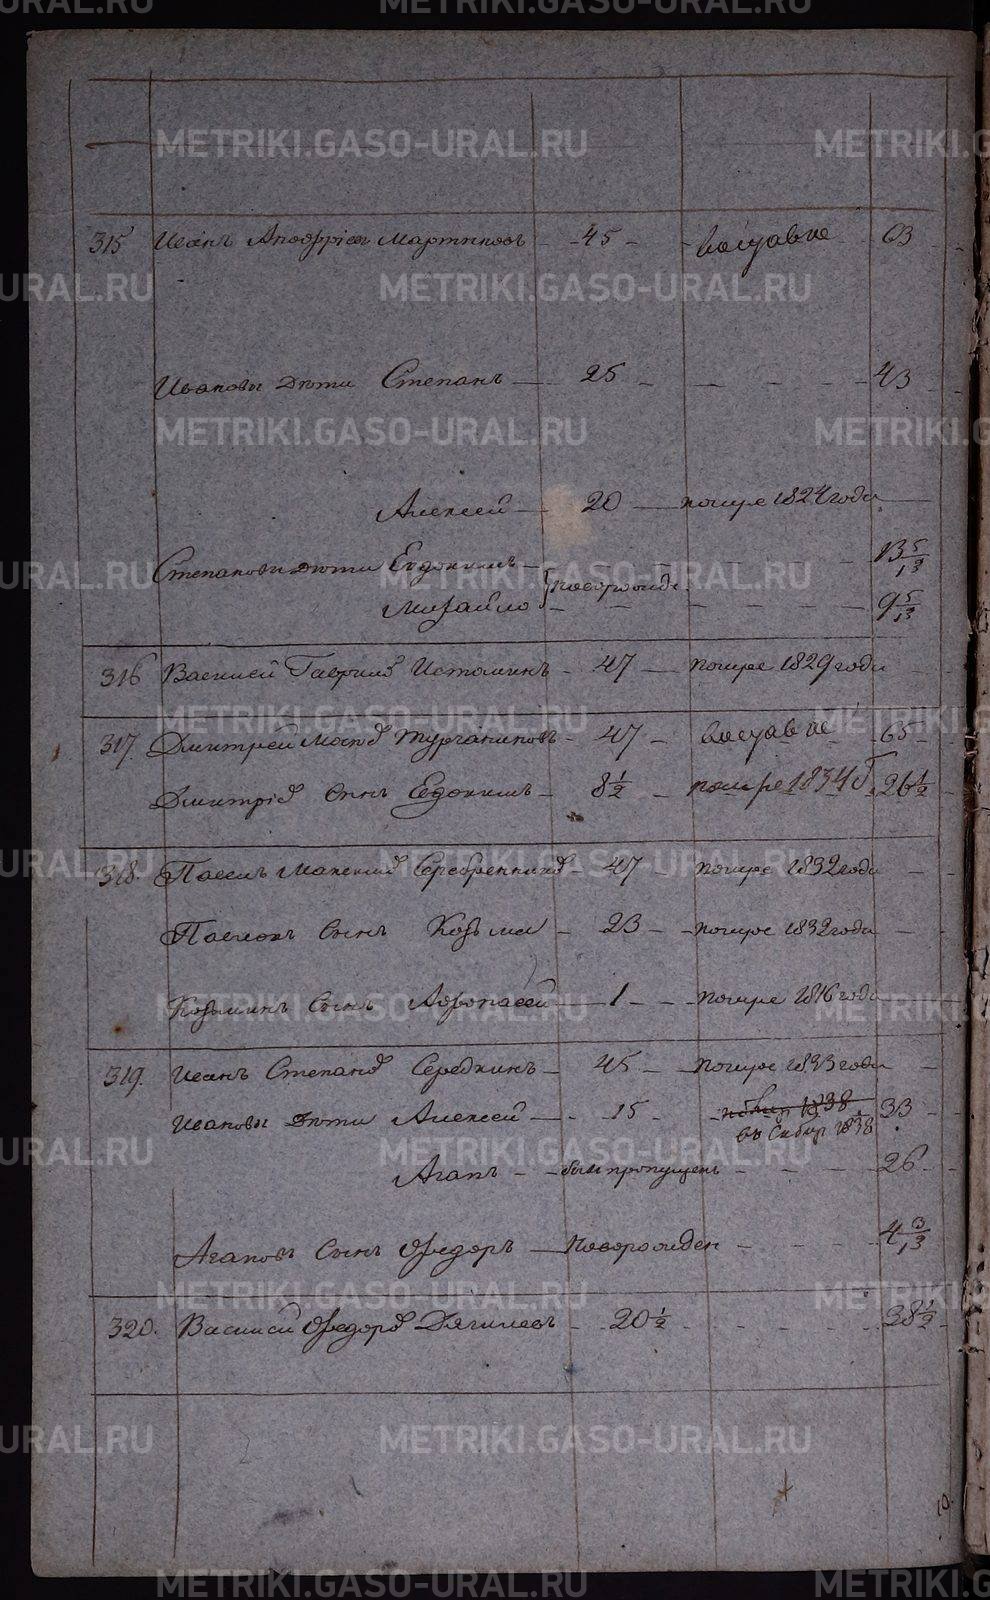 315 Иванъ Андреевъ Мартыновъ 45 63
Ивановы дѣти Степанъ 25 43
Алексей 20 помре 1824 года
Степановы дѣти Евдокимъ 13 5/12
Михайло новорожде. 9 5/12
316 Василей Гаврилов Истоминъ 47 помре 1829 года
317. Дмитрей 47 65
Дмитріев сынъ Евдокимъ 8 1/2 помре 1834 г. 26 1/2
318. Павелъ Серебренников 47 помре 1832 года
Павловъ сынъ Козьма 23 помре 1832 года
Козминъ сынъ Афонасей 1 помре 1816 года
319. Иванъ Степанов Середкинъ 45 помре 1833 года
Ивановы дѣти Алексей 15 1838 33
въ Сибир 1838
Агапъ былъ пропущенъ 26
Агаповъ сынъ Федоръ новорожден 4 3/12
320. Василей Федоров Дягилевъ 20 1/2 38 1/2
10.
METRIKI.GASO-URAL.RU